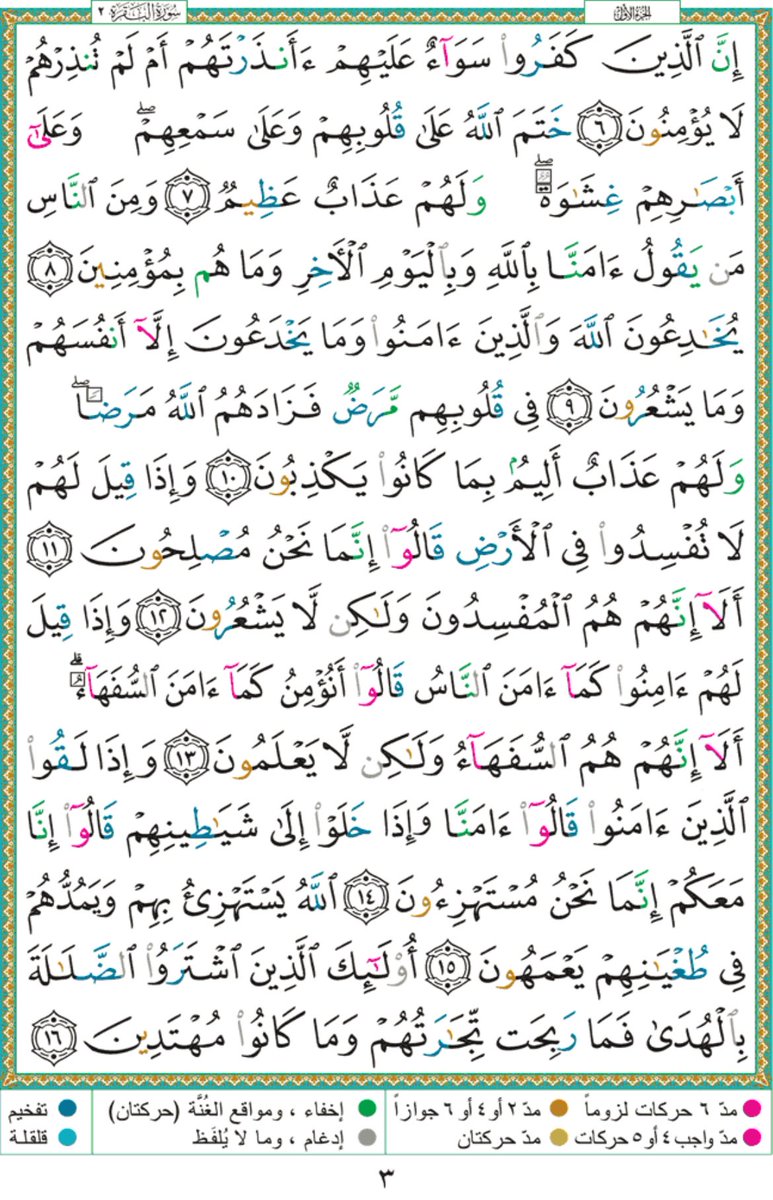 سُورَةُ البَقَرَة ٢
الجزء الأول
إِنَّ ٱلَّذِينَ كَفَرُوا۟ سَوَآءٌ عَلَيْهِمْ ءَأَنذَرْتَهُمْ أَمْ لَمْ تُنذِرْهُمْ
لَا يُؤْمِنُونَ ﴿٦﴾ خَتَمَ ٱللَّهُ عَلَىٰ قُلُوبِهِمْ وَعَلَىٰ سَمْعِهِمْ ۖ وَعَلَىٰٓ
أَبْصَـٰرِهِمْ غِشَـٰوَةٌ ۖ وَلَهُمْ عَذَابٌ عَظِيمٌ ﴿٧﴾ وَمِنَ ٱلنَّاسِ
مَن يَقُولُ ءَامَنَّا بِٱللَّهِ وَبِٱلْيَوْمِ ٱلْـَٔاخِرِ وَمَا هُم بِمُؤْمِنِينَ ﴿٨﴾
يُخَـٰدِعُونَ ٱللَّهَ وَٱلَّذِينَ ءَامَنُوا۟ وَمَا يَخْدَعُونَ إِلَّآ أَنفُسَهُمْ
وَمَا يَشْعُرُونَ ﴿٩﴾ فِى قُلُوبِهِم مَّرَضٌ فَزَادَهُمُ ٱللَّهُ مَرَضًا ۖ
وَلَهُمْ عَذَابٌ أَلِيمٌۢ بِمَا كَانُوا۟ يَكْذِبُونَ ﴿١٠﴾ وَإِذَا قِيلَ لَهُمْ
لَا تُفْسِدُوا۟ فِى ٱلْأَرْضِ قَالُوٓا۟ إِنَّمَا نَحْنُ مُصْلِحُونَ ﴿١١﴾
أَلَآ إِنَّهُمْ هُمُ ٱلْمُفْسِدُونَ وَلَـٰكِن لَّا يَشْعُرُونَ ﴿١٢﴾ وَإِذَا قِيلَ
لَهُمْ ءَامِنُوا۟ كَمَآ ءَامَنَ ٱلنَّاسُ قَالُوٓا۟ أَنُؤْمِنُ كَمَآ ءَامَنَ ٱلسُّفَهَآءُ ۗ
أَلَآ إِنَّهُمْ هُمُ ٱلسُّفَهَآءُ وَلَـٰكِن لَّا يَعْلَمُونَ ﴿١٣﴾ وَإِذَا لَقُوا۟
ٱلَّذِينَ ءَامَنُوا۟ قَالُوٓا۟ ءَامَنَّا وَإِذَا خَلَوْا۟ إِلَىٰ شَيَـٰطِينِهِمْ قَالُوٓا۟ إِنَّا
مَعَكُمْ إِنَّمَا نَحْنُ مُسْتَهْزِءُونَ ﴿١٤﴾ ٱللَّهُ يَسْتَهْزِئُ بِهِمْ وَيَمُدُّهُمْ
فِى طُغْيَـٰنِهِمْ يَعْمَهُونَ ﴿١٥﴾ أُو۟لَـٰٓئِكَ ٱلَّذِينَ ٱشْتَرَوُا۟ ٱلضَّلَـٰلَةَ
بِٱلْهُدَىٰ فَمَا رَبِحَت تِّجَـٰرَتُهُمْ وَمَا كَانُوا۟ مُهْتَدِينَ ﴿١٦﴾
مدّ ٦ حركات لزوماً مدّ ٢ أو ٤ أو ٦ جوازاً إخفاء ، ومواقع الغُنَّة (حركتان) تفخيم
مدّ واجب ٤ أو ٥ حركات مدّ حركتان إدغام ، وما لا يُلفَظ قلقلة
٣